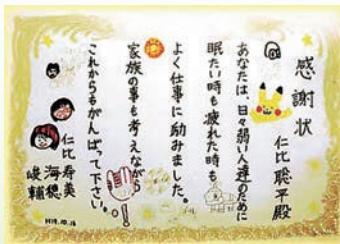 感謝状
仁比聡平殿
あなたは、日々弱い人達のために
眠たい時も疲れた時も
よく仕事に励みました。
家族の事も考えながら
これからもがんばって下さい。
仁比寿美
海穂
峻輔
H18.10.16